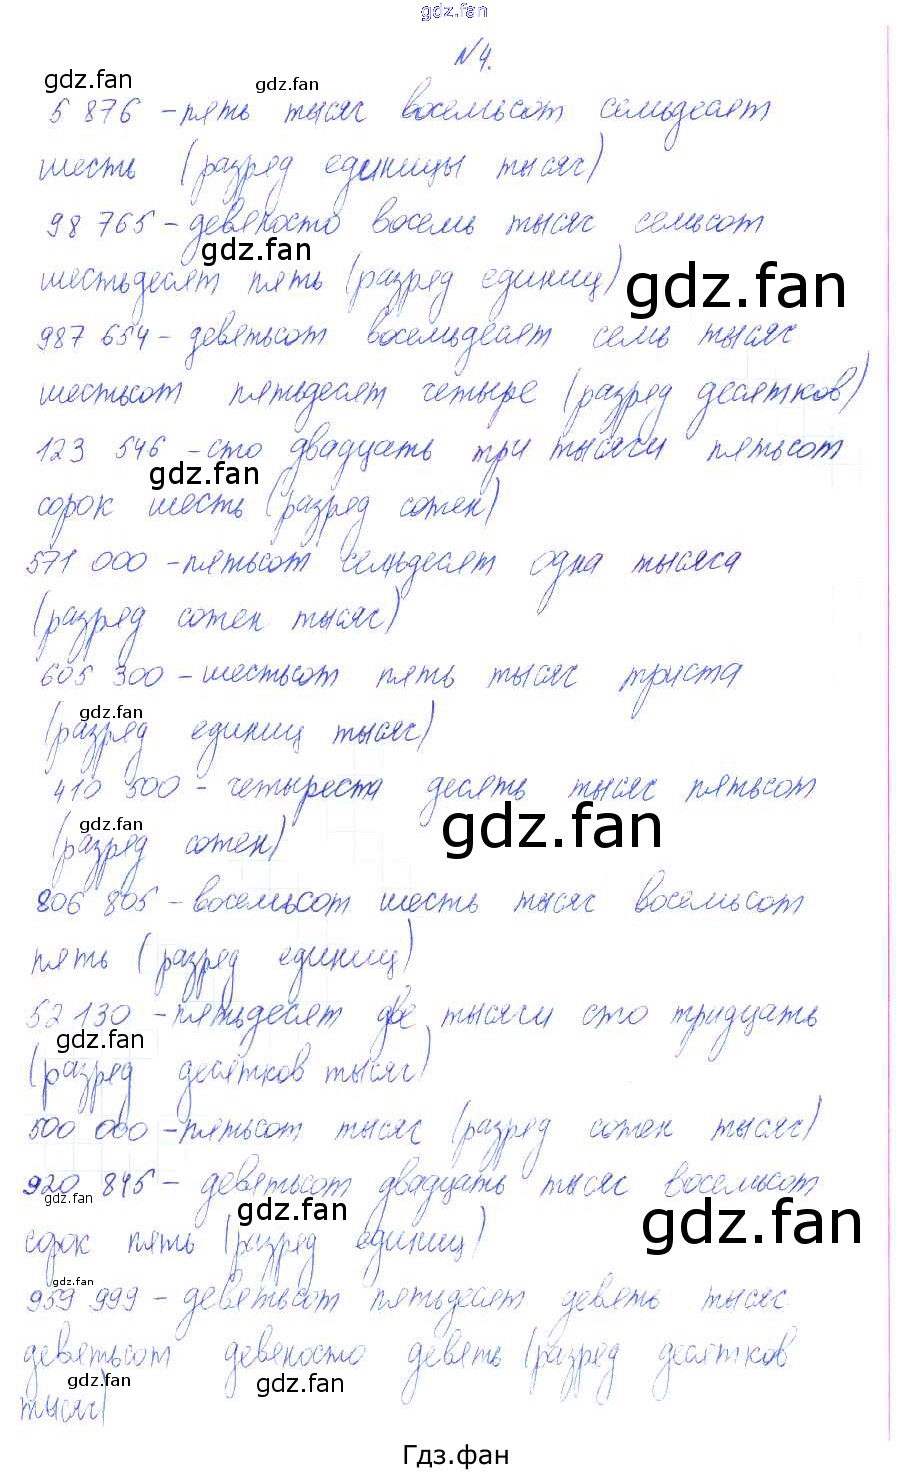 gdz.fan
N 4.
gdz.fan gdz.fan
5 876 - пять тысяч восемьсот семьдесят
шесть (разряд единицы тысяч)
98 765 - девяносто восемь тысяч семьсот
gdz.fan
шестьдесят пять (разряд единиц)
gdz.fan
987 654 - девятьсот восемьдесят семь тысяч
шестьсот пятьдесят четыре (разряд десятков)
123 546 - сто двадцать три тысячи пятьсот
gdz.fan
сорок шесть (разряд сотен)
571 000 - пятьсот семьдесят одна тысяча
(разряд сотен тысяч)
605 300 - шестьсот пять тысяч триста
gdz.fan
(разряд единиц тысяч)
410 500 - четыреста десять тысяч пятьсот
gdz.fan gdz.fan
(разряд сотен)
806 805 - восемьсот шесть тысяч восемьсот
пять (разряд единиц)
52 130 - пятьдесят две тысячи сто тридцать
gdz.fan
(разряд десятков тысяч)
500 000 - пятьсот тысяч (разряд сотен тысяч)
920 845 - девятьсот двадцать тысяч восемьсот
gdz.fan gdz.fan gdz.fan
сорок пять (разряд единиц)
gdz.fan
959 999 - девятьсот пятьдесят девять тысяч
девятьсот девяносто девять (разряд десятков
gdz.fan gdz.fan
тысяч)
Гдз.фан